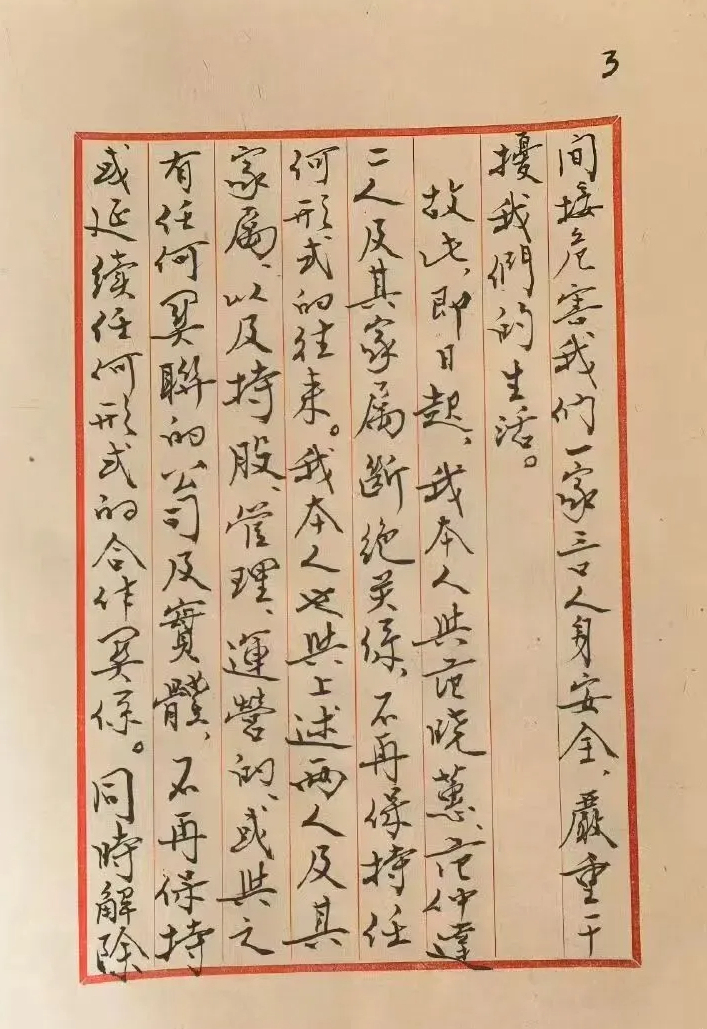 3
间接危害我们一家三口人身安全、嚴重干
擾我們的生活。
故此，即日起，我本人與范晓蕙、范仲達
二人及其家属断绝关係、不再保持任
何形式的往来。我本人也與上述两人及其
家属、以及持股、管理、運营的、或與之
有任何関聯的公司及實體、不再保持
或延續任何形式的合作関係。同時解除